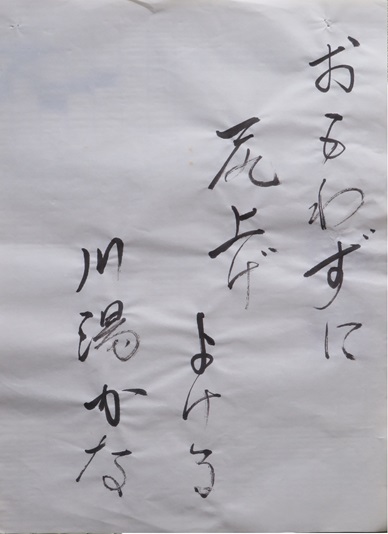 おもわずに
尻上げ
よける
川湯かな